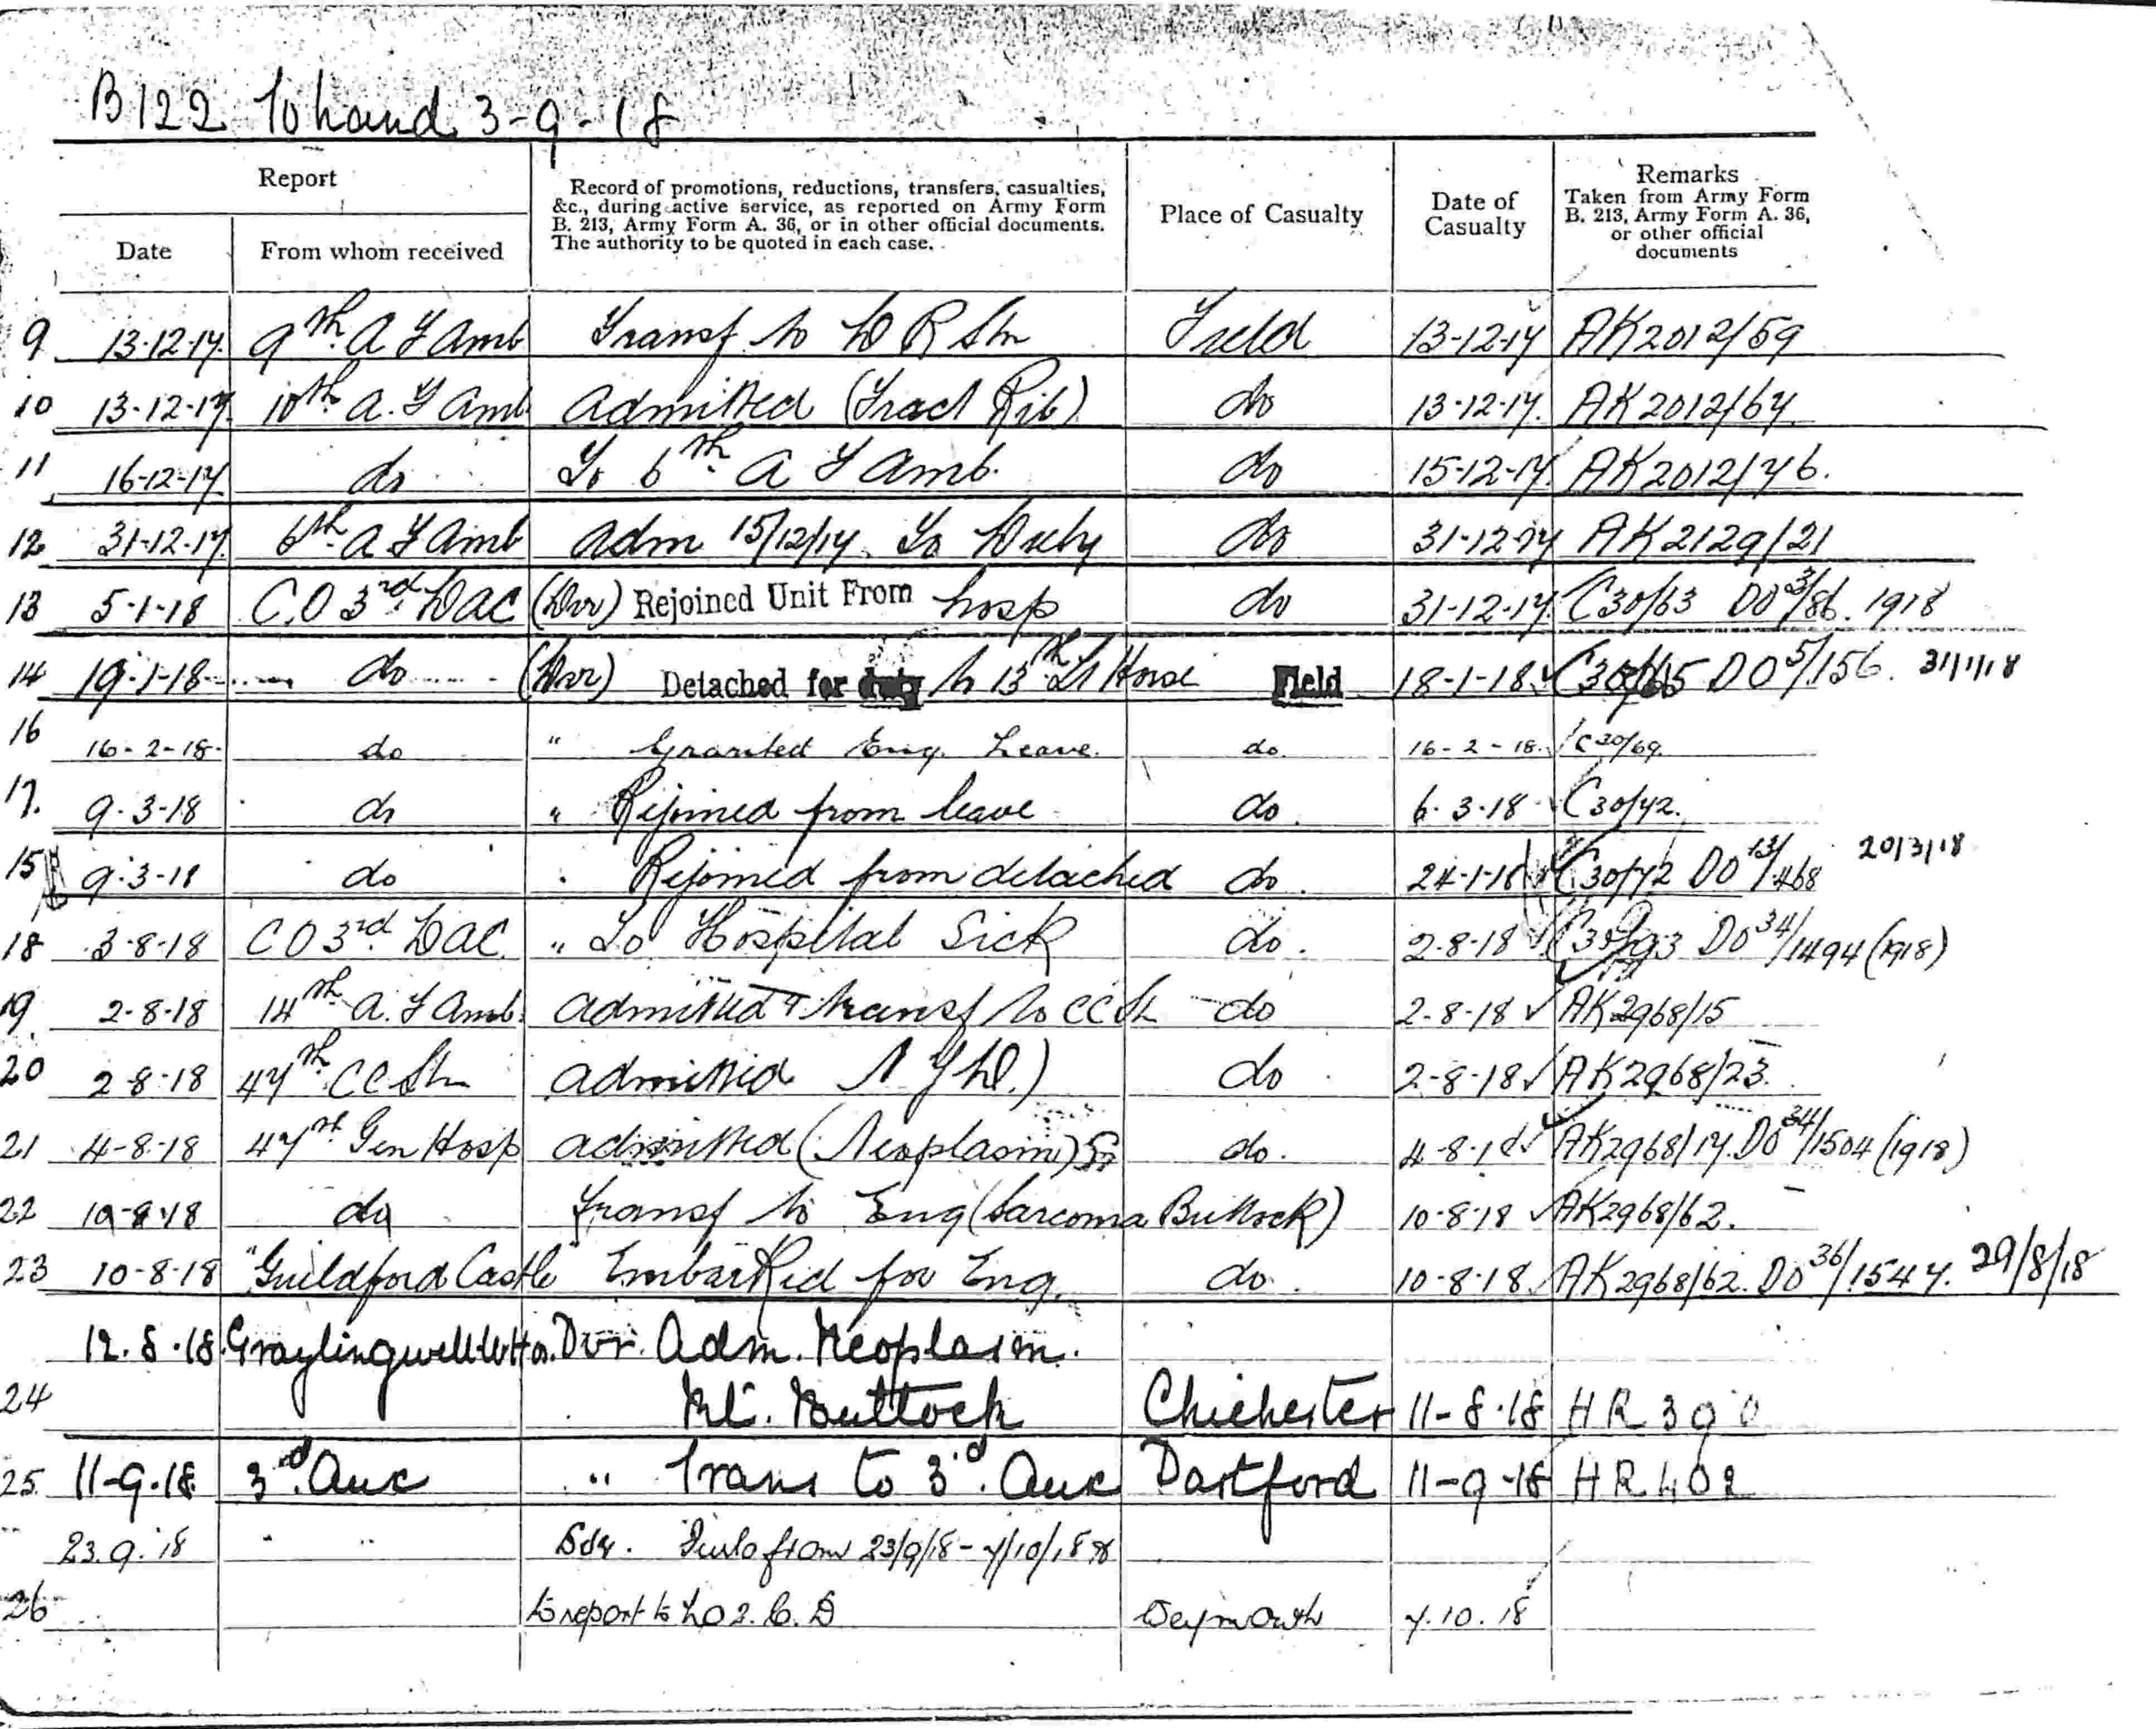 B122 To hand 3-9-18
Report
Date
From whom received
Record of promotions, reductions, transfers, casualties,
&c., during active service, as reported on Army Form
B. 213, Army Form A. 36, or in other official documents.
The authority to be quoted in each case.
Place of Casualty
Date of
Casualty
Remarks
Taken from Army Form
B. 213, Army Form A. 36,
or other official
documents
9 13-12-17. 9th A F Amb Transf to D R Stn Field 13-12-17 AK2012/59
10 13-12-17. 10th A. F Amb Admitted (Fract Rib) do 13-12-17. AK2012/67
11 16-12-17. do To 6th A F Amb. do 15-12-17. AK2012/76.
12 31-12-17. 6th A F Amb Adm 15/12/17. To Duty do 31-12-17 AK2129/21
13 5-1-18 C.O 3rd DAC (Dvr) Rejoined Unit From hosp do 31-12-17. C30/63 DO 3/86. 1918
14 19-1-18 do (Dvr) Detached for duty to 13th Lt Horse Field 18-1-18 C30/65 DO 5/156. 31/1/18
16 16-2-18. do " Granted Eng. Leave. do. 16-2-18. C30/69.
17. 9-3-18 do " Rejoined from leave do. 6-3-18 C30/72.
15 9-3-18 do " Rejoined from detached do. 24-1-18 C30/72 DO 13/468 20/3/18
18 3-8-18 CO 3rd DAC. " To Hospital Sick do. 2-8-18 C30/93 DO 34/1494 (1918)
19. 2-8-18 14th A. F Amb. Admitted & transf to CC St do 2-8-18 AK2968/15
20 2-8-18 47th CC Stn Admitted N Y D.) do 2-8-18 AK2968/23.
21 4-8-18 47th Gen Hosp admitted (Neoplasm) do. 4-8-18 AK2968/17. DO 34/1504 (1918)
22 10-8-18 do Transf to Eng (Sarcoma Buttock) 10-8-18 AK2968/62.
23 10-8-18 "Guildford Castle" Embarked for Eng. do. 10-8-18 AK2968/62. DO 36/1547. 29/8/18
12.8.18. Graylingwell W Hos. Dvr. Adm. Neoplasm.
24 Rt. Buttock Chichester 11-8-18 HR 390
25. 11-9-18 3rd Aux " Trans to 3rd Aux Dartford 11-9-18 HR 402
23.9.18 " " Furlo from 23/9/18 - 7/10/18 &
26 to report to No 2. C. D Weymouth 7.10.18